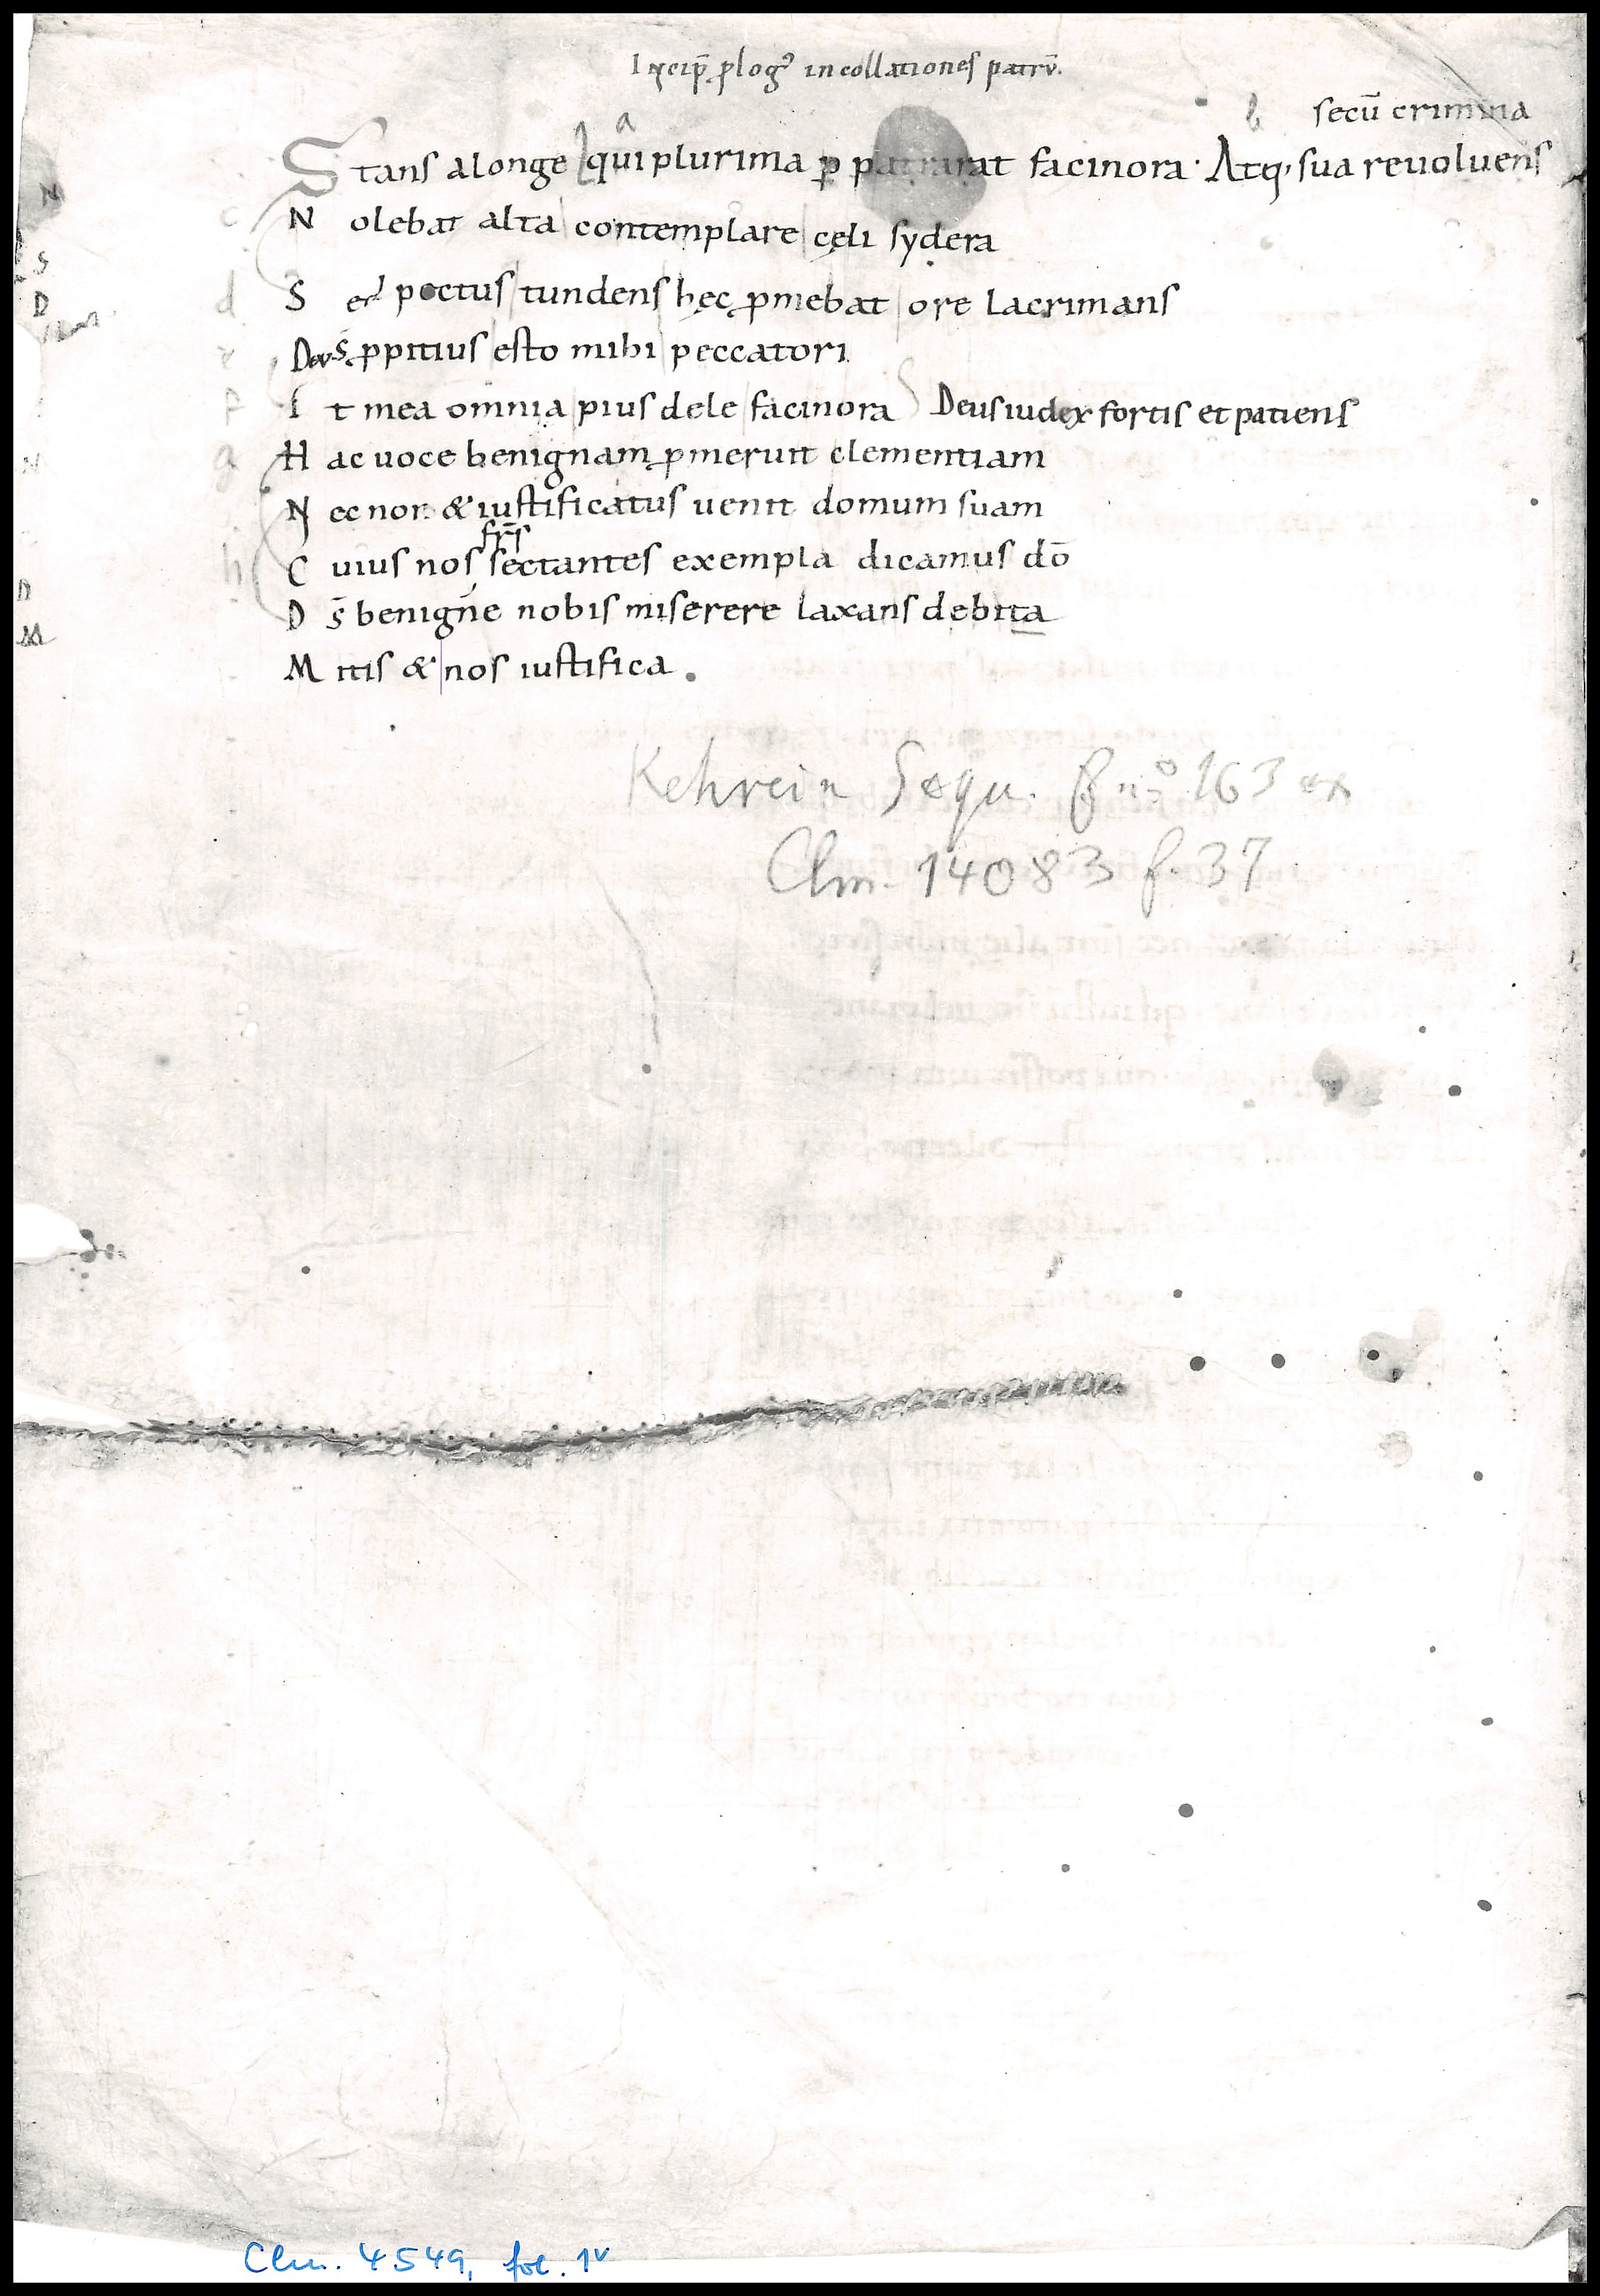 Incip̄ ꝓlogꝰ in collationes patrū.
secū crimina
a b
Stans a longe qui plurima ꝑ patrarat facinora · Atq; sua reuoluens
c Nolebat alta contemplare cęli sydera
d Sed pectus tundens hęc ꝓmebat ore lacrimans
e Deus ꝓpitius esto mihi peccatori
f It mea omnia pius dele facinora Deus iudex fortis et patiens
g Hac uoce benignam ꝓmeruit clementiam
Nec non & iustificatus uenit domum suam
fr̄s
h Cuius nos sectantes exempla dicamus dō
Ds̄ benigne nobis miserere laxans debita
Mitis & nos iustifica.
N
S
D
N
D
M
Kehrein Sequ. nº 163 ex
Clm. 14083 f. 37
Clm. 4549, fol. 1v